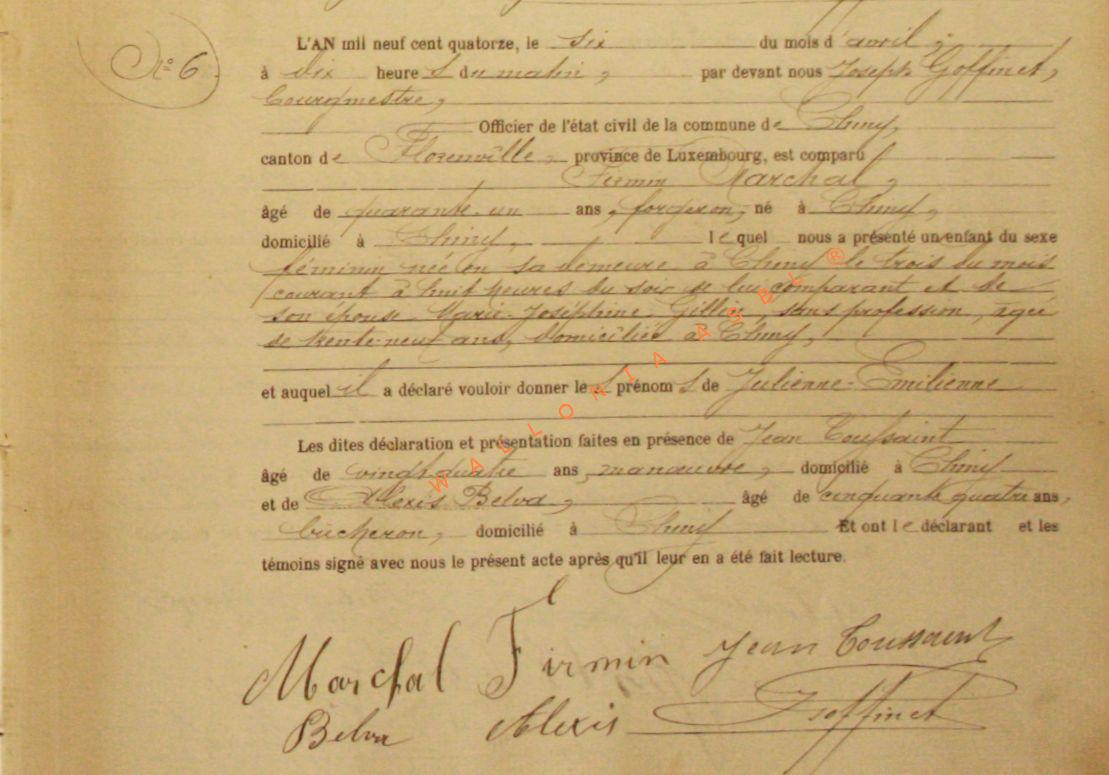 N° 6.
L'AN mil neuf cent quatorze, le six du mois d'avril,
à dix heures du matin, par devant nous Joseph Goffinet,
bourgmestre,
Officier de l'état civil de la commune de Chiny,
canton de Florenville, province de Luxembourg, est comparu
Firmin Marchal,
âgé de quarante-un ans, forgeron, né à Chiny,
domicilié à Chiny, lequel nous a présenté un enfant du sexe
féminin née en sa demeure à Chiny le trois du mois
courant à huit heures du soir de lui comparant et de
son épouse Marie-Joséphine Gillin, sans profession, âgée
de trente-neuf ans, domiciliée à Chiny,
et auquel il a déclaré vouloir donner les prénoms de Julienne-Emilienne
Les dites déclaration et présentation faites en présence de Jean Toussaint
âgé de vingt-quatre ans, manœuvre, domicilié à Chiny
et de Alexis Belva, âgé de cinquante quatre ans,
bûcheron, domicilié à Chiny Et ont le déclarant et les
témoins signé avec nous le présent acte après qu'il leur en a été fait lecture.
Marchal Firmin Jean Toussaint
Belva Alexis JGoffinet
WALLONIA ASBL ®